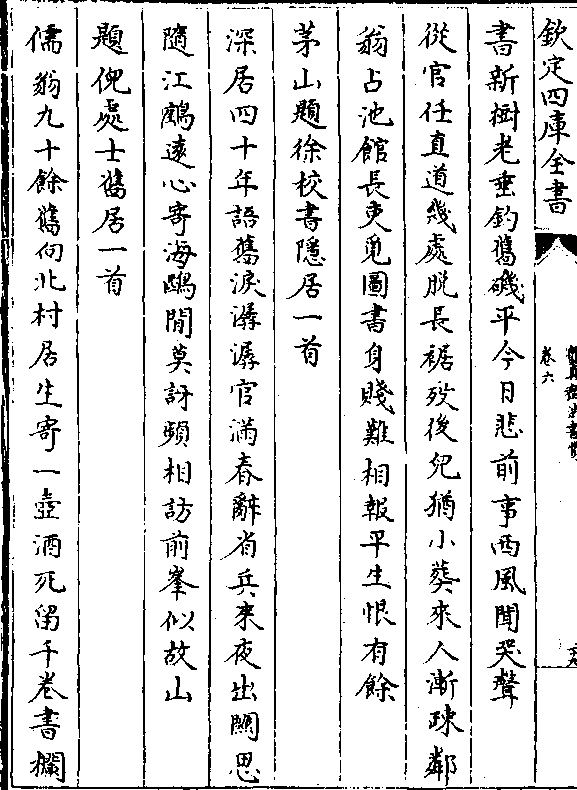 欽定四庫全書
卷六
書新樹老垂釣舊磯平今日悲前事西風聞哭聲
從官任直道幾處脫長裾歿後兒猶小葬來人漸踈鄰
翁占池館長吏覓圖書身賤難相報平生恨有餘
茅山題徐校書隱居一首
深居四十年語舊淚潺潺官滿春辭省兵來夜出關思
隨江鷁遠心寄海鷗閒莫訝頻相訪前峯似故山
題倪處士舊居一首
儒翁九十餘舊向北村居生寄一壺酒死留千卷書欄